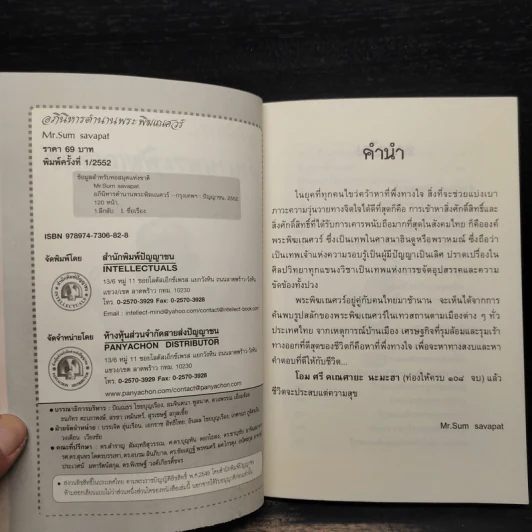 อภินิหารตำนานพระพิฆเนศวร์
Mr.Sum savapat
ราคา 69 บาท
พิมพ์ครั้งที่ 1/2552
ข้อมูลสำหรับหอสมุดแห่งชาติ
Mr.Sum savapat.
อภินิหารตำนานพระพิฆเนศวร์ - กรุงเทพฯ : ปัญญาชน, 2552
120 หน้า.
1.ลึกลับ 1. ชื่อเรื่อง
ISBN 978974-7306-82-8
จัดพิมพ์โดย สำนักพิมพ์ปัญญาชน
INTELLECTUALS
13/6 หมู่ 11 ซอยโลตัสเอ็กซ์เพรส แยกวังหิน ถนนลาดพร้าว-วังหิน
แขวง/เขต ลาดพร้าว กทม. 10230
โทร. 0-2570-3929 Fax: 0-2570-3928
Email : intelect-mind@yahoo.com/contact@intelect-book.com
จัดจำหน่ายโดย ห้างหุ้นส่วนจำกัดสายส่งปัญญาชน
PANYACHON DISTRIBUTOR
13/6 หมู่ 11 ซอยโลตัสเอ็กซ์เพรส แยกวังหิน ถนนลาดพร้าว-วังหิน
แขวง/เขต ลาดพร้าว กทม. 10230
โทร. 0-2570-3929 Fax: 0-2570-3928
www.panyachon.com/contact@panyachon.com
คำนำ
ในยุคที่ทุกคนไขว่คว้าหาที่พึ่งทางใจ สิ่งที่จะช่วยแบ่งเบา
ภาวะความวุ่นวายทางจิตใจได้ดีที่สุดก็คือ การเข้าหาสิ่งศักดิ์สิทธิ์และ
สิ่งศักดิ์สิทธิ์ที่ได้รับการเคารพนับถือมากที่สุดในสังคมไทย ก็คือองค์
พระพิฆเนศวร์ ซึ่งเป็นเทพในศาสนาฮินดูหรือพราหมณ์ ซึ่งถือว่า
เป็นเทพเจ้าแห่งความรอบรู้เป็นผู้มีปัญญาเป็นเลิศ ปราดเปรื่องใน
ศิลปวิทยาทุกแขนงวิชาเป็นเทพแห่งการขจัดอุปสรรคและความ
ขัดข้องทั้งปวง
พระพิฆเนศวร์อยู่คู่กับคนไทยมาช้านาน จะเห็นได้จากการ
ค้นพบรูปสลักของพระพิฆเนศวร์ในเทวสถานตามเมืองต่าง ๆ ทั่ว
ประเทศไทย จากเหตุการณ์บ้านเมือง เศรษฐกิจที่รุมล้อมและรุมเร้าหา
ทางออกที่ดีที่สุดของชีวิตก็คือหาที่พึ่งทางใจ เพื่อจะหาทางสงบและหา
คำตอบที่ดีให้กับชีวิต...
โอม ศรี คเณศายะ นะมะฮา (ท่องให้ครบ ๑๐๘ จบ) แล้ว
ชีวิตจะประสบแต่ความสุข
Mr.Sum savapat